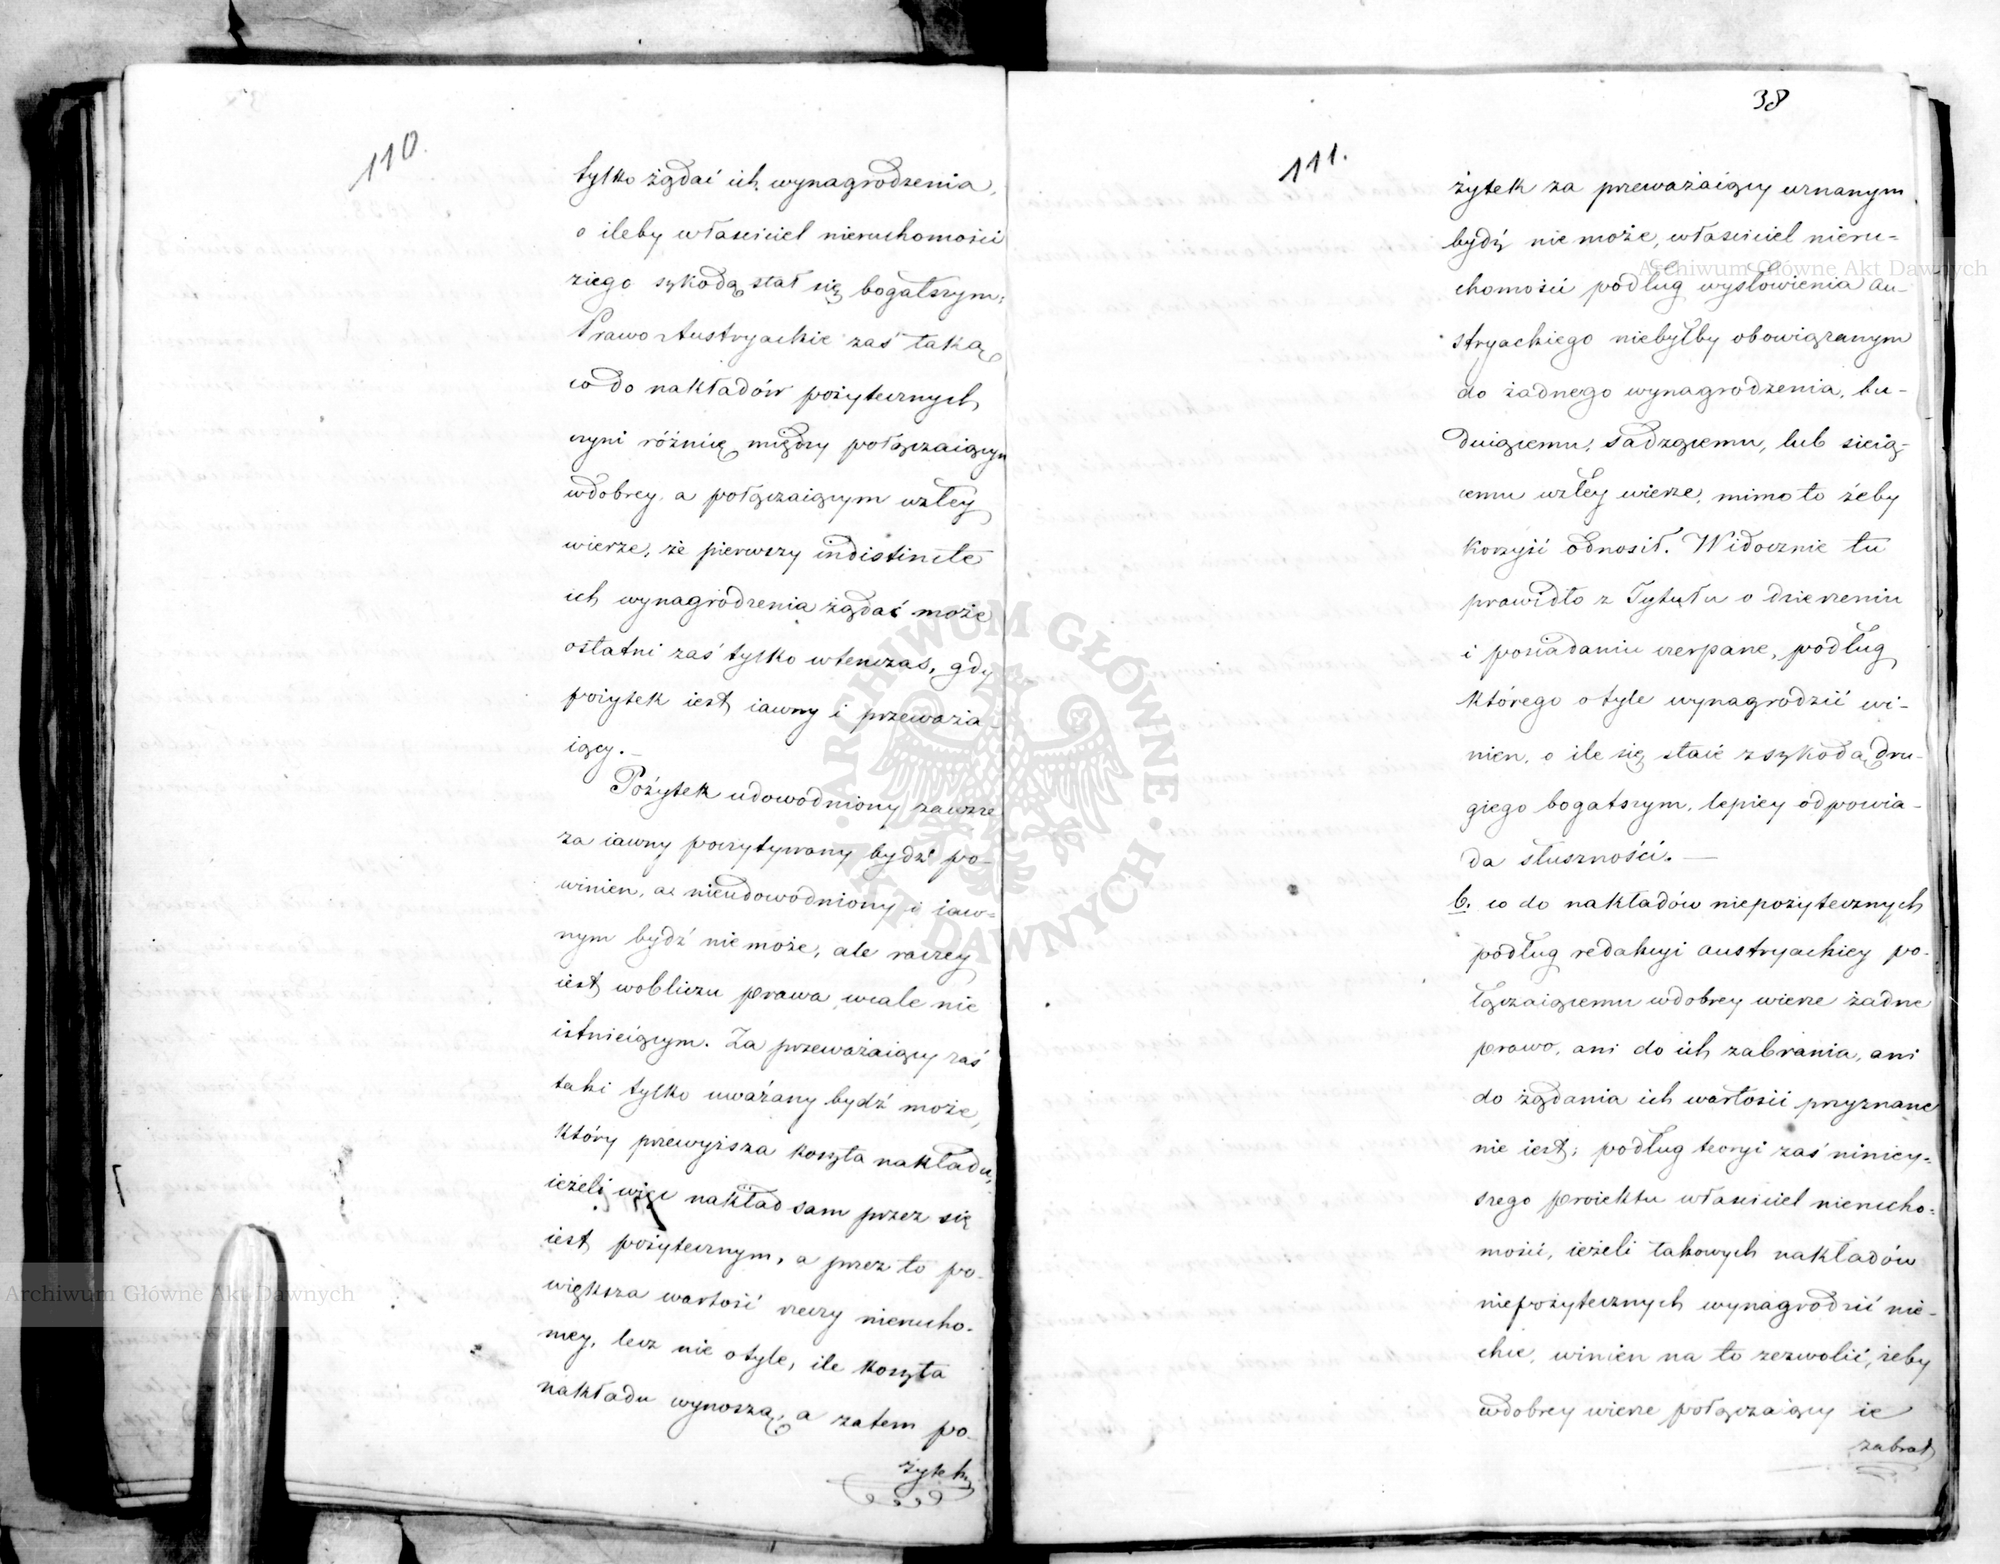 110.
tylko żądać ich wynagrodzenia,
o ileby właściciel nieruchomości
ziego szkodą stał się bogatszym;
Prawo Austryackie zaś taką
co do nakładów pożytecznych
czyni różnicę między połączaiącym
wdobrey, a połączaiącym wzłey
wierze, że pierwszy indistincte
ich wynagrodzenia żądać może
ostatni zaś tylko wtenczas, gdy
pożytek iest iawny i przeważa
iący.—
Pożytek udowodniony zawsze
za iawny poczytywany bydź po-
winien, a nieudowodniony i iaw-
nym bydź nie może, ale raczey
iest wobliczu prawa wcale nie
istnieiącym. Za przeważaiący zaś
taki tylko uważany bydź może,
który przewyższa koszta nakładu,
ieżeli więc nakład sam przez się
iest pożytecznym, a przez to po-
większa wartość rzeczy nierucho-
mey, lecz nie otyle, ile koszta
nakładu wynoszą, a zatem po-
żytek
38
111.
żytek za przeważaiący uznanym
bydź nie może, właściciel nieru-
chomości podług wysłowienia au-
stryackiego niebyłby obowiązanym
do żadnego wynagrodzenia, bu-
duiącemu, sadzącemu, lub sieią-
cemu wzłey wierze, mimo to żeby
korzyść odnosił. Widocznie tu
prawidło z Tytułu o dzierzeniu
i posiadaniu czerpane, podług
którego otyle wynagrodzić wi-
nien, o ile się staie z szkodą dru-
giego bogatszym, lepiey odpowia-
da słuszności.—
b. co do nakładów niepożytecznych
podług redakcyi austryackiey po-
łączaiącemu wdobrey wierze żadne
prawo, ani do ich zabrania, ani
do żądania ich wartości przyznane
nie iest; podług teoryi zaś niniey-
szego proiektu właściciel nierucho-
mości, ieżeli takowych nakładów
niepożytecznych wynagrodzić nie-
chce, winien na to zezwolić, żeby
wdobrey wierze połączaiący ie
zabrał
Archiwum Główne Akt Dawnych
Archiwum Główne Akt Dawnych
ARCHIWUM GŁÓWNE AKT DAWNYCH